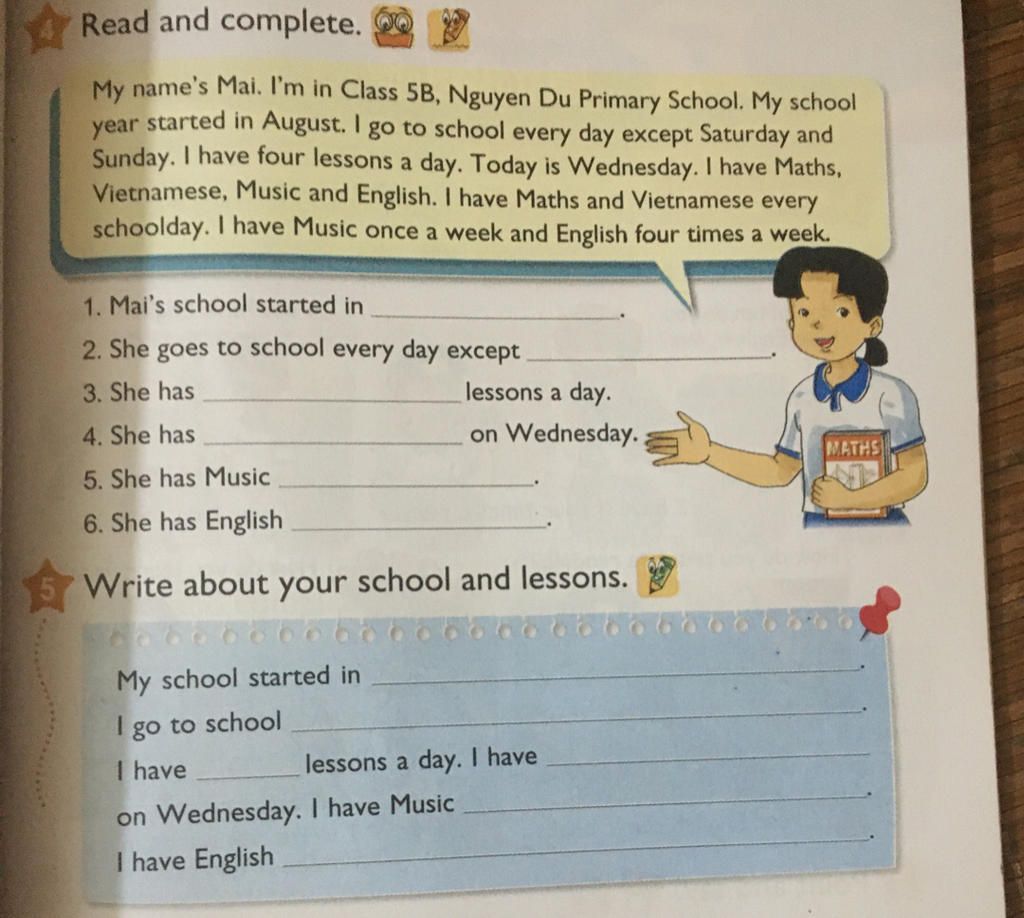 4 Read and complete.
My name's Mai. I'm in Class 5B, Nguyen Du Primary School. My school
year started in August. I go to school every day except Saturday and
Sunday. I have four lessons a day. Today is Wednesday. I have Maths,
Vietnamese, Music and English. I have Maths and Vietnamese every
schoolday. I have Music once a week and English four times a week.
1. Mai's school started in ____________________.
2. She goes to school every day except ____________________.
3. She has ____________________ lessons a day.
4. She has ____________________ on Wednesday.
MATHS
5. She has Music ____________________.
6. She has English ____________________.
5 Write about your school and lessons.
My school started in ____________________.
I go to school ____________________.
I have ________ lessons a day. I have ____________________
on Wednesday. I have Music ____________________.
I have English ____________________.